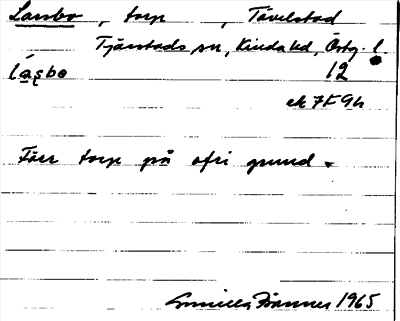 Lassbo, torp, Tåvelstad
Tjärstads sn, Kinda hd, Östg. l.
lásbo 12
ek 7F 9h
Förr torp på ofri grund.
Gunilla Brännes 1965